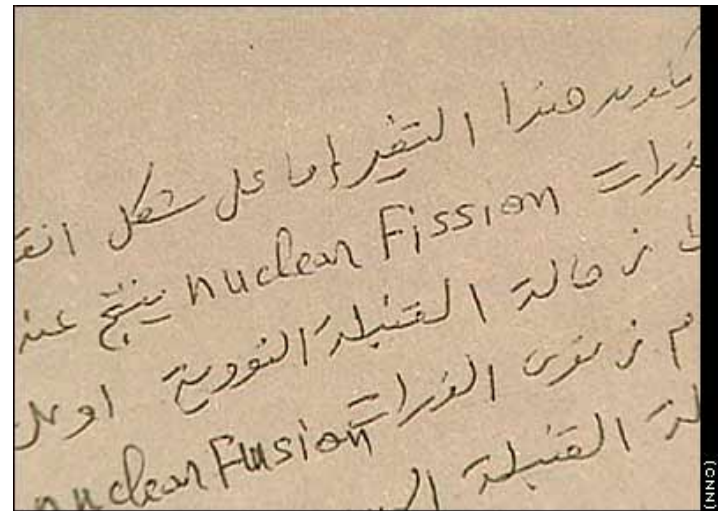 يكون هذا التغير إما على شكل انقـ
ذرات nuclear Fission ينتج عنه
كما في حالة القنبلة النووية او على
م في نوى الذرات nuclear Fusion
لة القنبلة الهيد
(CNN)